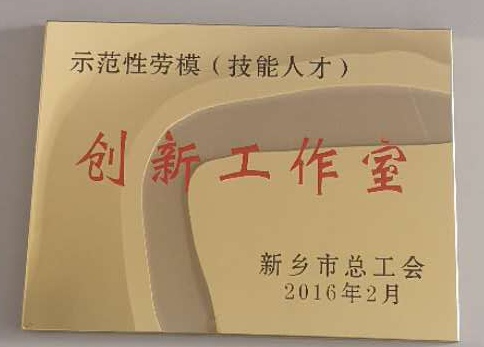 示范性劳模（技能人才）
创新工作室
新乡市总工会
2016年2月